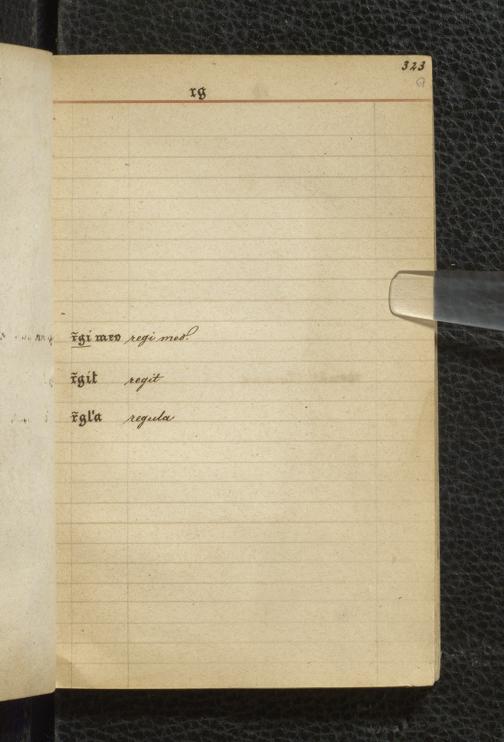 323
rg
r̃gi meo regi meo.
r̃git regit
r̃gl'a regula